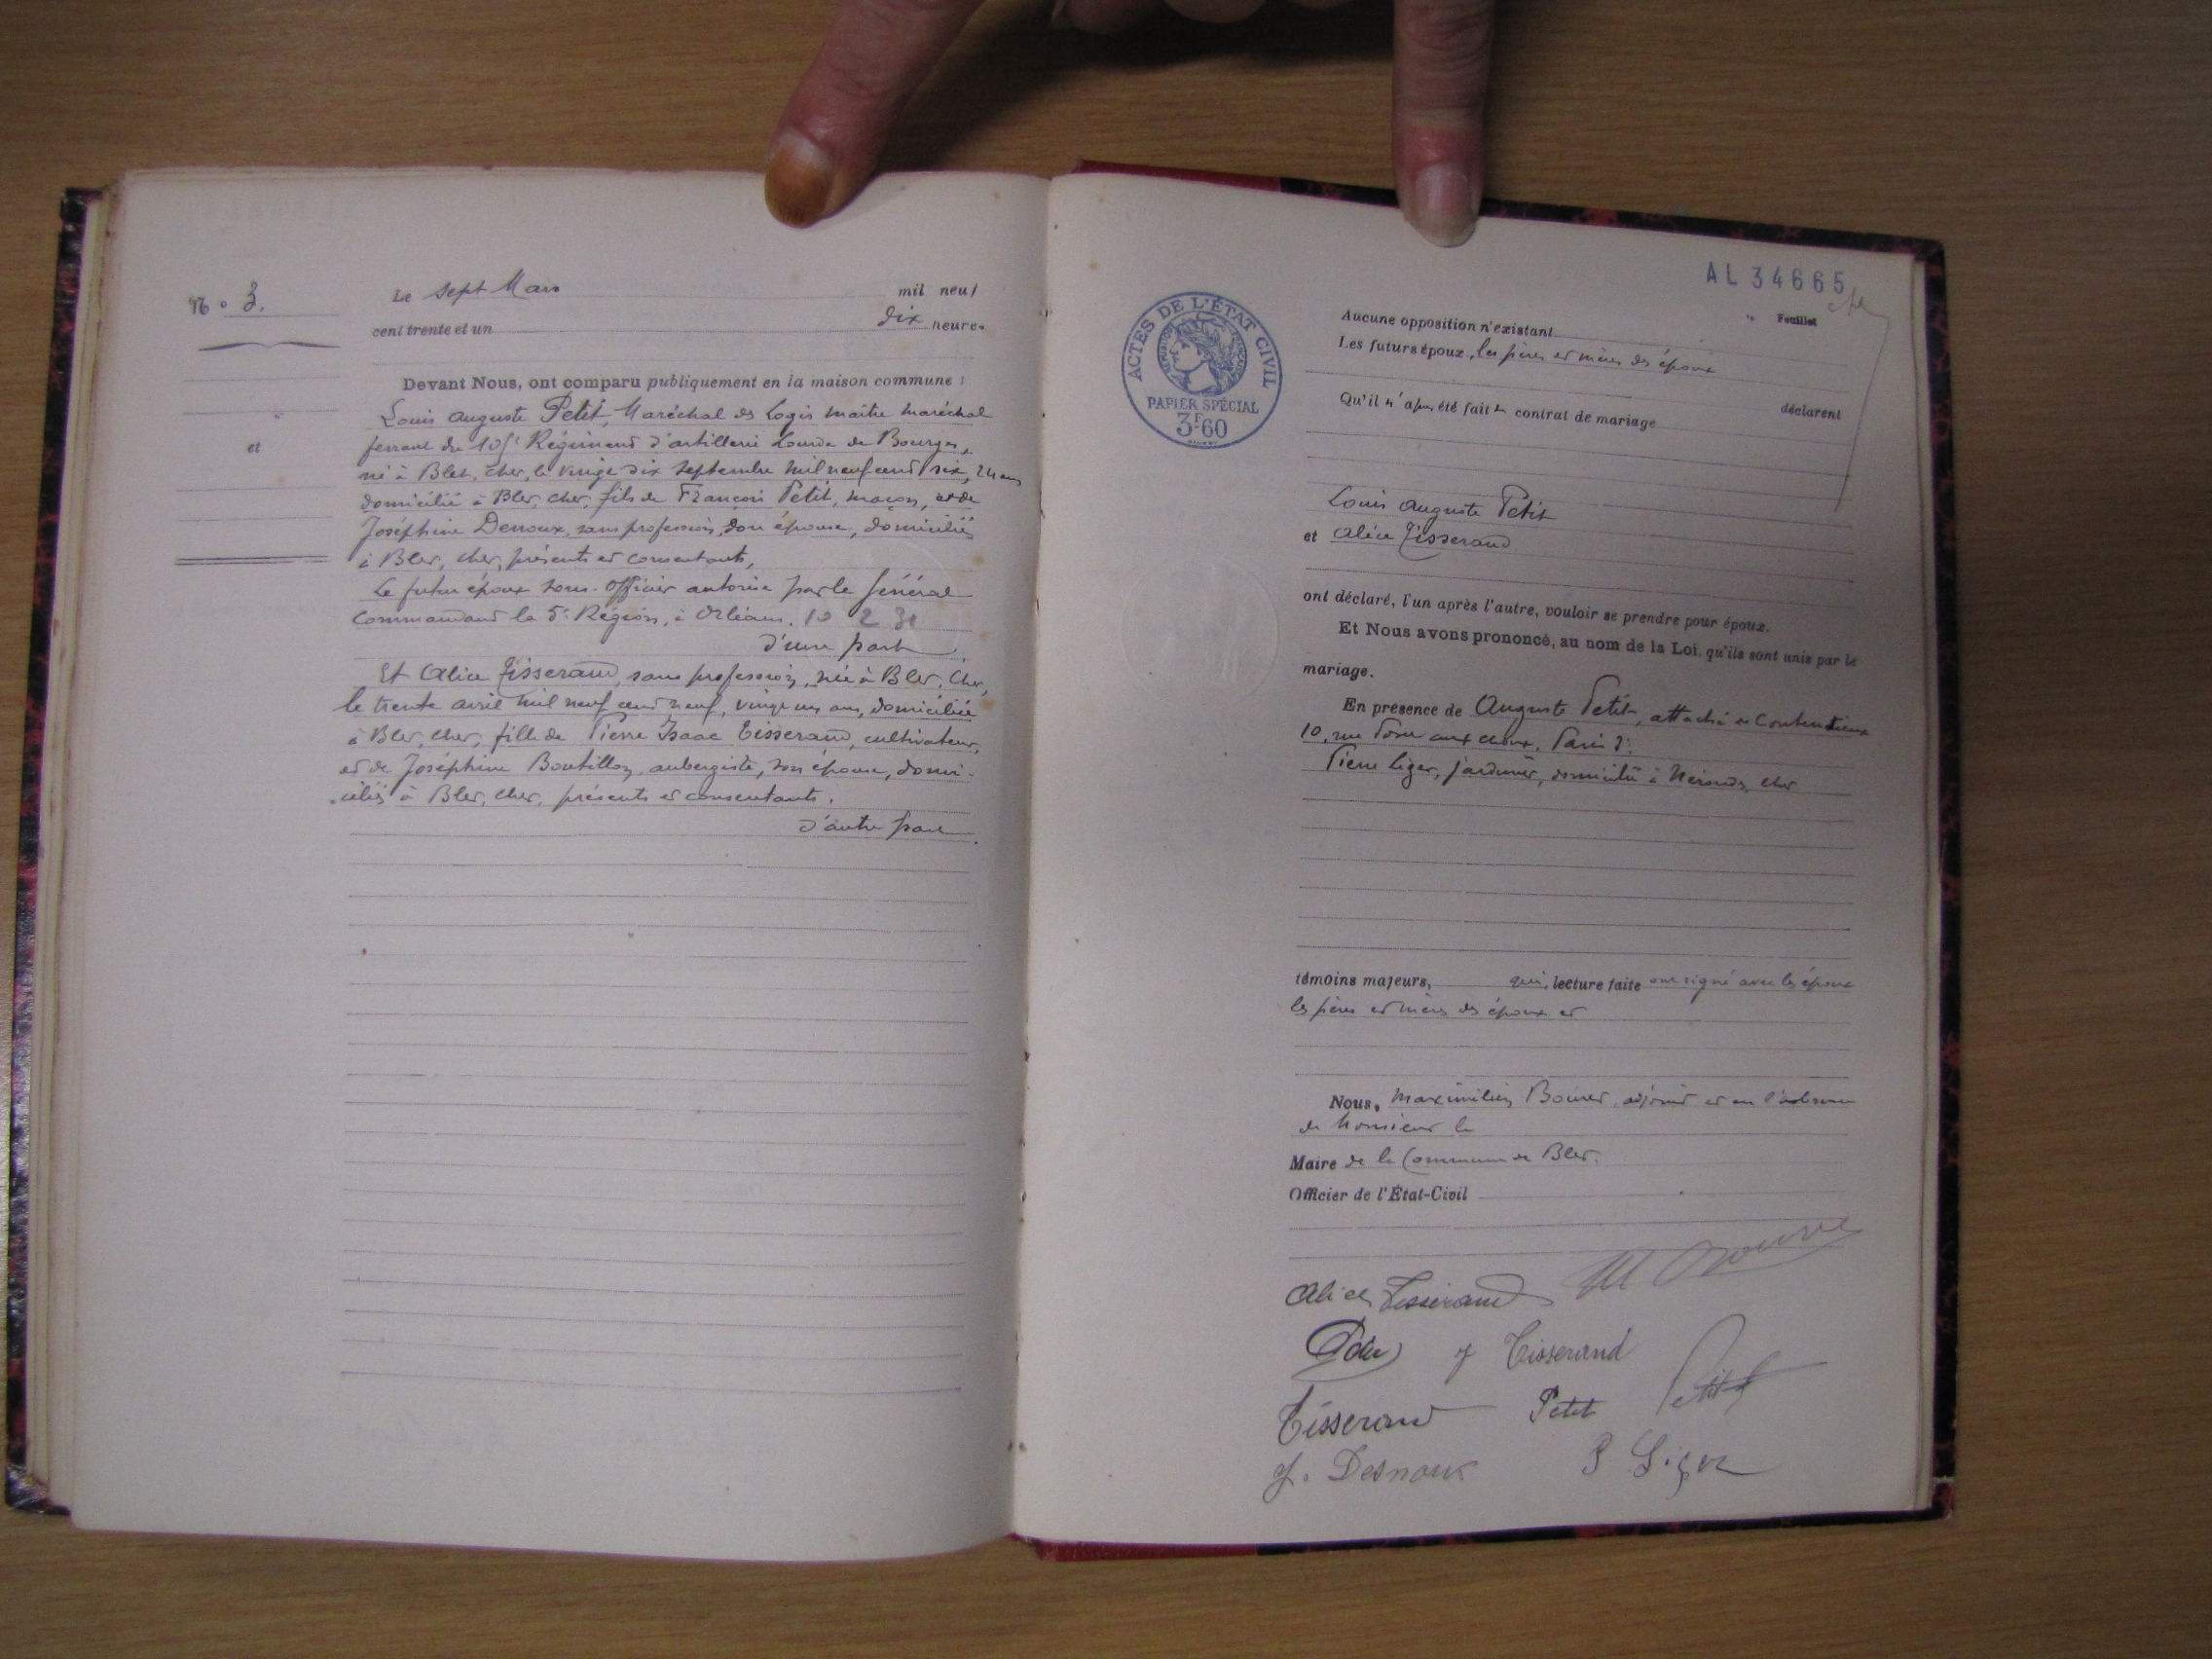 N° 3.
Le sept Mars mil neuf
cent trente et un dix heures
Devant Nous, ont comparu publiquement en la maison commune :
et
Louis Auguste Petit, Maréchal des Logis maître maréchal
ferrant du 105e Régiment d'artillerie Lourde de Bourges,
né à Blet, Cher, le vingt dix septembre mil neuf cent six, 24 ans
domicilié à Blet, Cher, fils de François Petit, maçon, et de
Joséphine Denoux, sans profession, son épouse, domiciliés
à Blet, Cher, présents et consentants,
Le futur époux sous-officier autorisé par le Général
Commandant la 5e Région, à Orléans, 10 2 31
d'une part
Et Alice Tisserand, sans profession, née à Blet, Cher,
le trente avril mil neuf cent neuf, vingt un ans, domiciliée
à Blet, Cher, fille de Pierre Isaac Tisserand, cultivateur,
et de Joséphine Boutillon, aubergiste, son épouse, domi-
ciliés à Blet, Cher, présents et consentants.
d'autre part
ACTES DE L'ÉTAT CIVIL
PAPIER SPÉCIAL
3F60
AL 34665
Feuillet
Aucune opposition n'existant
Les futurs époux, les pères et mères des époux
déclarent
Qu'il n'a pas été fait de contrat de mariage
Louis Auguste Petit
et Alice Tisserand
ont déclaré, l'un après l'autre, vouloir se prendre pour époux.
Et Nous avons prononcé, au nom de la Loi, qu'ils sont unis par le
mariage.
En présence de Auguste Petit, attaché au Contentieux
10, rue aux choux, Paris 3e
Pierre Liger, jardinier, domicilié à Nérondes, Cher
témoins majeurs, qui, lecture faite ont signé avec les époux
les pères et mères des époux et
Nous, Maximilien Bouret, adjoint et en l'absence
de Monsieur le
Maire de la Commune de Blet.
Officier de l'État-Civil
Alice Tisserand
J Tisserand
Tisserand Petit Petit
J. Desnoux P Liger